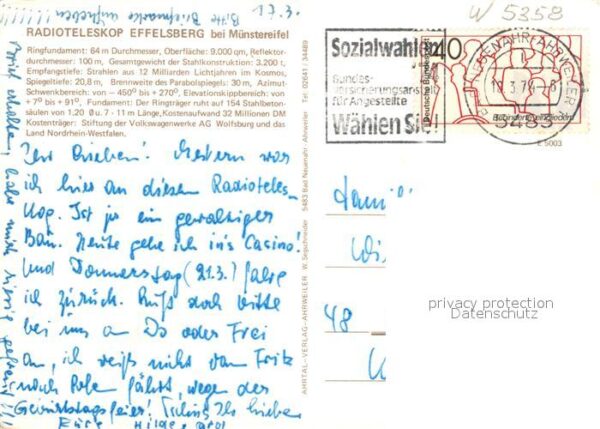 17.3.
Bitte Briefmarke aufheben !!!!!!!!
RADIOTELESKOP EFFELSBERG bei Münstereifel
Ringfundament: 64 m Durchmesser, Oberfläche: 9.000 qm, Reflektor-
durchmesser: 100 m, Gesamtgewicht der Stahlkonstruktion: 3.200 t,
Empfangstiefe: Strahlen aus 12 Milliarden Lichtjahren im Kosmos,
Spiegeltiefe: 20,8 m, Brennweite des Parabolspiegels: 30 m, Azimut-
Schwenkbereich: von — 450° bis + 270°, Elevationskippbereich: von
+ 7° bis + 91°, Fundament: Der Ringträger ruht auf 154 Stahlbeton-
säulen von 1,20 Ø u. 7 - 11 m Länge, Kostenaufwand 32 Millionen DM
Kostenträger: Stiftung der Volkswagenwerke AG Wolfsburg und das
Land Nordrhein-Westfalen.
Ihr Lieben! Gestern war
ich hier an diesem Radioteles-
kop. Ist ja ein gewaltiger
Bau. Heute gehe ich in's Casino!
Und Donnerstag (21.3.) fahre
ich zurück. Ruft doch bitte
bei uns an Do oder Frei
an, ich weiß nicht wann Fritz
nach fährt, wegen der
Geburtstagsfeier! Tschüs Ihr Lieben
Eure
Brief erhalten, habe mich riesig gefreut!!!
AHRTAL-VERLAG-AHRWEILER W. Segschneider 5483 Bad Neuenahr - Ahrweiler Tel. 02641 / 34489
W 5358
Sozialwahlen
Bundes-
versicherungsanstalt
für Angestellte
Wählen Sie!
40
Deutsche Bundespost
Behinderte eingliedern
5483
E 5003
Fami
48
privacy protection
Datenschutz